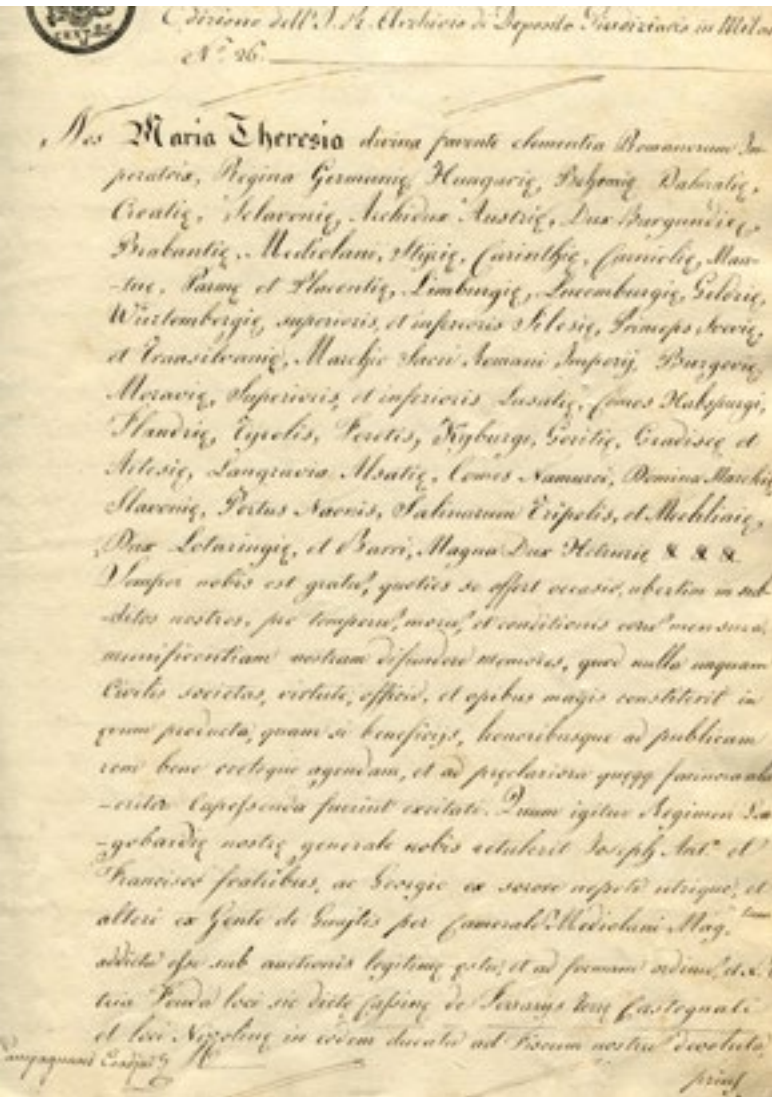 CENT. 50
Edizione dell' I. R. Archivio di Deposito Giudiziario in Milano
N.° 26.
Nos Maria Theresia divina favente clementia Romanorum Im-
peratrix, Regina Germanię, Hungarię, Bohęmię Dalmatię,
Croatię, Sclavonię, Archidux Austrię, Dux Burgundię,
Brabantię, Mediolani, Styrię, Carinthię, Carniolię, Man-
-tuę, Parmę et Placentię, Limburgię, Lucemburgię, Geldrię,
Würtembergię, superioris, et inferioris Silesię, Princeps Svevię,
et Transilvanię, Marchio Sacri Romani Imperij, Burgovię,
Moravię, Superioris, et inferioris Lusatię, Comes Habspurgi,
Flandrię, Tyrolis, Feretis, Kyburgi, Goritię, Gradiscę et
Artesię, Langravia Alsatię, Comes Namurci, Domina Marchię
Slavonię, Portus Naonis, Salinarum Tripolis, et Mechlinię,
Dux Lotaringię, et Barri, Magna Dux Hetrurię & & &
Semper nobis est gratu', quoties se offert occasio, ubertim in sub-
-ditos nostros, pro temporu', moru', et conditionis eoru' mensura,
munificentiam nostram difundere memores, quod nulla unquam
Civilis societas, virtute, officio, et opibus magis constiterit in
ęvum producta, quam si beneficijs, honoribusque ad publicam
rem bene recteque agendam, et ad pręclariora quęq facinora ala-
-criter capessenda fuerint excitati. Quum igitur Regimen Lon-
-gobardię nostrę generale nobis retulerit Joseph Ant.° et
Francisco fratribus, ac Georgio ex sorore nepoti utrique, et
alteri ex Gente de Guajtis per Camerale' Mediolani Mag.
addicta esse sub auctionis legitimę
tria Feuda loci sic dictę Cassinę de Ferrarijs terrę Castegnati
et loci Nigolinę in eodem ducatu ad Fiscum nostru' devoluta,
prius